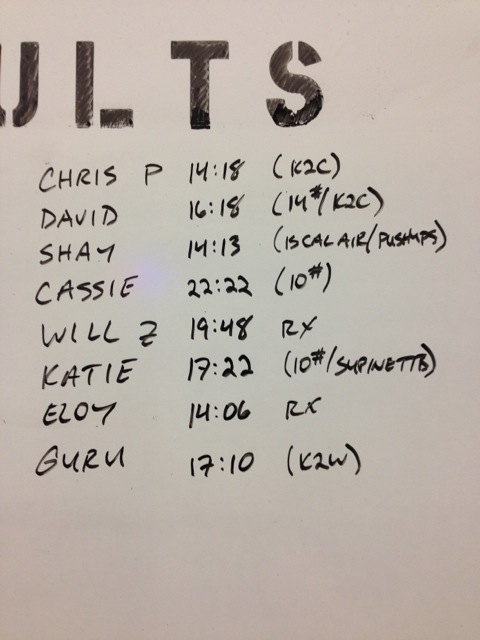 ULTS
CHRIS P 14:18 (K2C)
DAVID 16:18 (14#/K2C)
SHAY 14:13 (15CAL AIR/PUSHUPS)
CASSIE 22:22 (10#)
WILL Z 19:48 RX
KATIE 17:22 (10#/SUPINETTB)
ELOY 14:06 RX
GURU 17:10 (K2W)